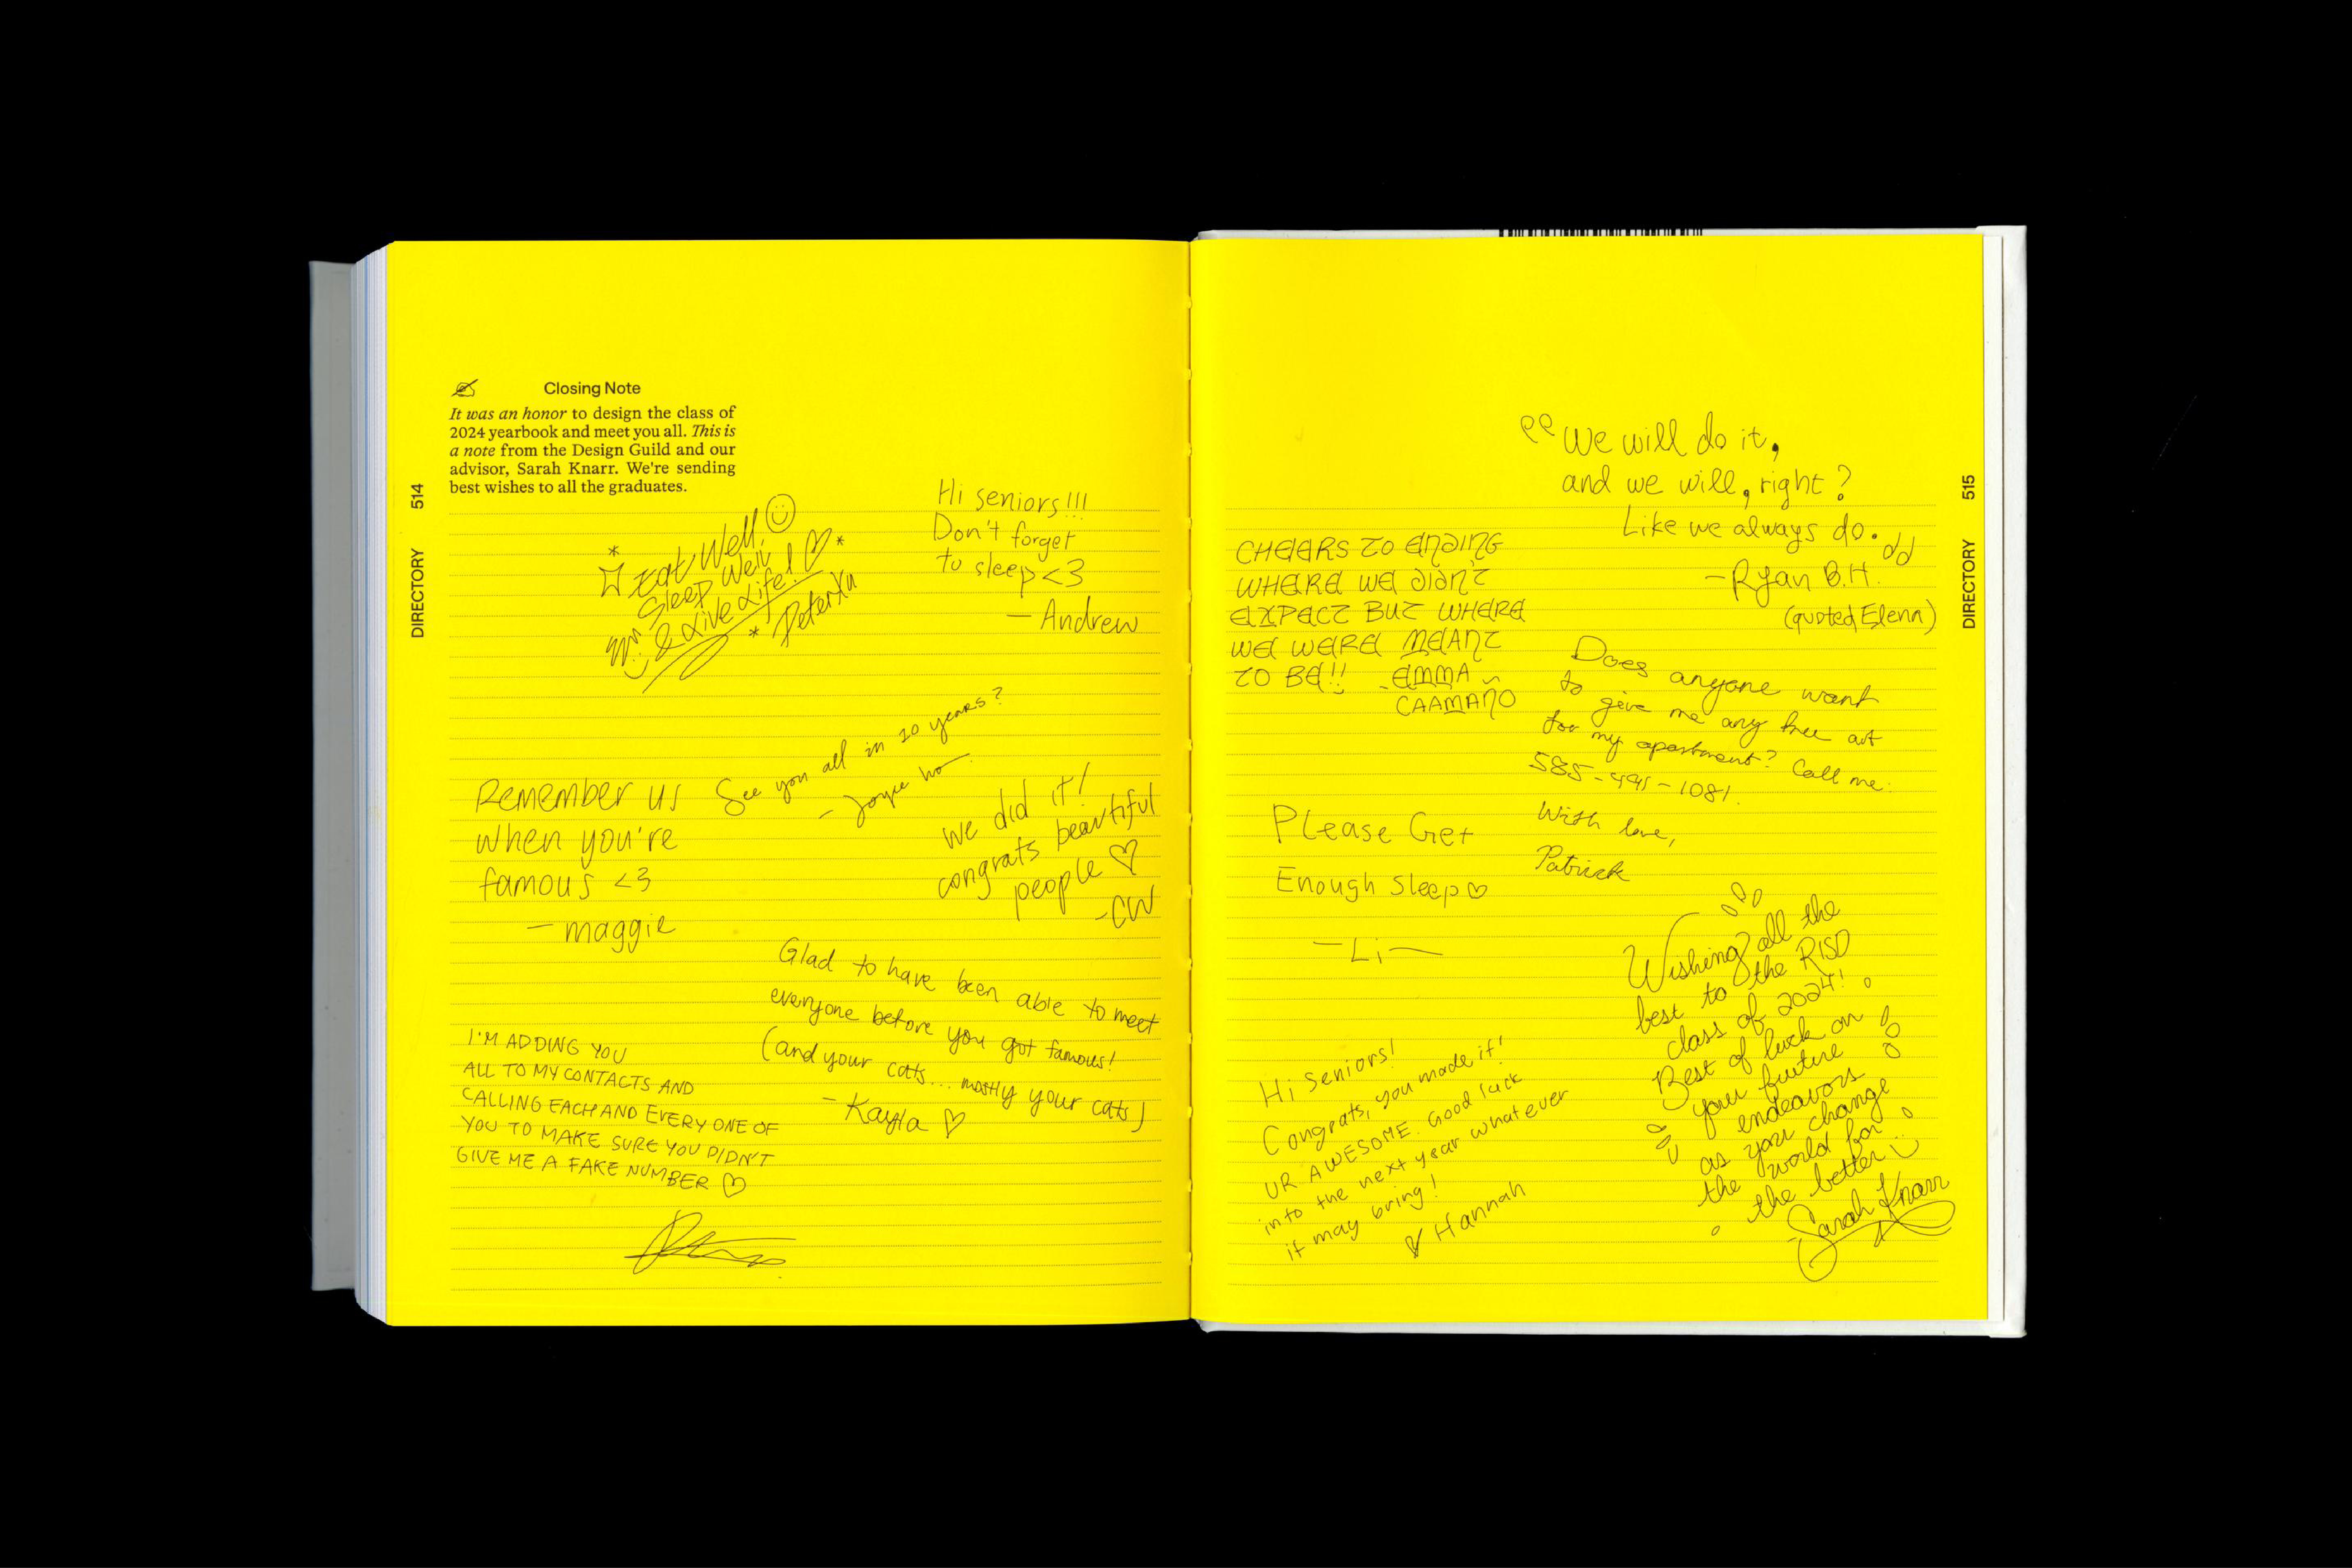 Closing Note
It was an honor to design the class of
2024 yearbook and meet you all. This is
a note from the Design Guild and our
advisor, Sarah Knarr. We're sending
best wishes to all the graduates.
514
DIRECTORY
Eat Well,
Sleep Well
& Live Life!
Peter Xu
Hi seniors!!!
Don't forget
to sleep <3
— Andrew
See you all in 10 years?
— Joyce Ho
Remember us
when you're
famous <3
— maggie
we did it!
congrats beautiful
people ♡
-CW
Glad to have been able to meet
everyone before you got famous!
(and your cats... mostly your cats)
- Kayla ♡
I'M ADDING YOU
ALL TO MY CONTACTS AND
CALLING EACH AND EVERY ONE OF
YOU TO MAKE SURE YOU DIDN'T
GIVE ME A FAKE NUMBER ♡
515
DIRECTORY
“We will do it,
and we will, right?
Like we always do.”
- Ryan B.H.
(quoted Elenn)
CHEERS TO ENDING
WHERE WE DIDN'T
EXPECT BUT WHERE
WE WERE MEANT
TO BE!! - EMMA
CAAMAÑO
Does anyone want
to give me any free art
for my apartment? Call me:
585-491-1081.
With love,
Patrick
Please Get
Enough Sleep ♡
— Li —
Wishing all the
best to the RISD
class of 2024!
Best of luck on
your future
endeavors
as you change
the world for
the better
- Sarah Knarr
Hi seniors!
Congrats, you made it!
UR AWESOME. Good luck
into the next year whatever
it may bring!
♡ Hannah